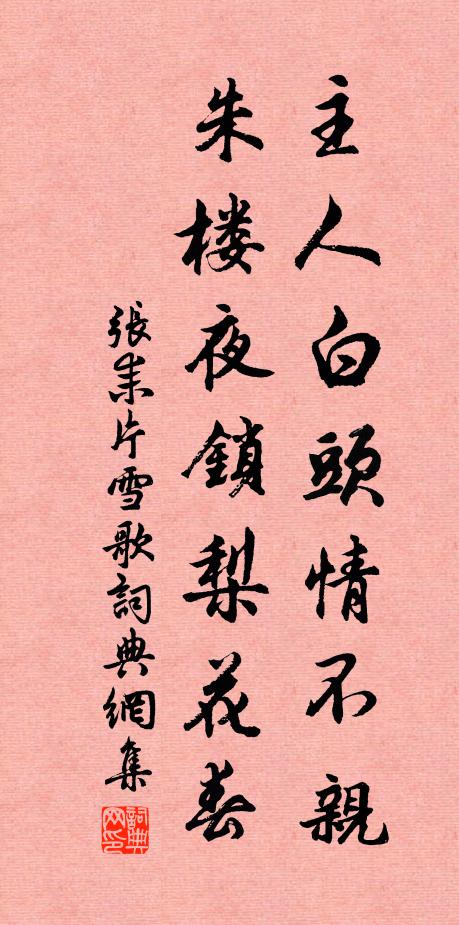 主人白頭情不親
朱楼夜鎖梨花春
張耒片雪歌詞典網集
詞典
网印